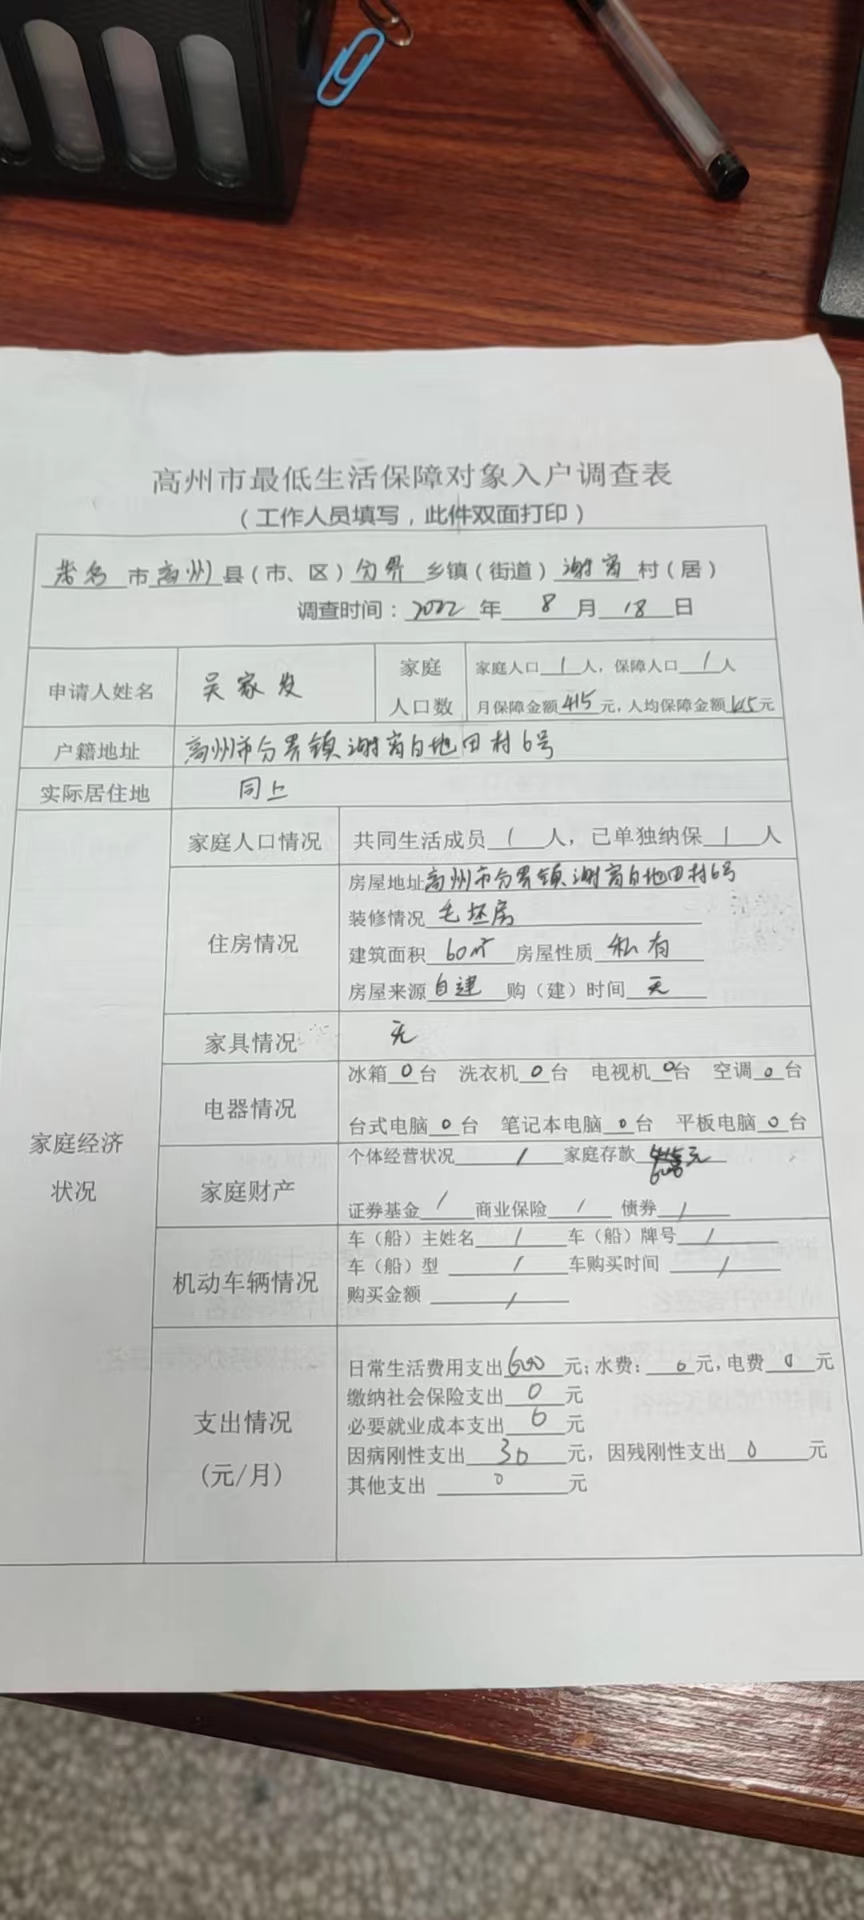 高州市最低生活保障对象入户调查表
（工作人员填写，此件双面打印）
茂名市高州县（市、区）分界乡镇（街道）谢岗村（居）
调查时间：2022年8月18日
申请人姓名 吴家发 家庭人口数 家庭人口1人，保障人口1人
月保障金额415元，人均保障金额 元
户籍地址 高州市分界镇谢岗白地田村6号
实际居住地 同上
家庭经济状况
家庭人口情况 共同生活成员1人，已单独纳保1人
住房情况 房屋地址高州市分界镇谢岗白地田村6号
装修情况 毛坯房
建筑面积 60㎡ 房屋性质 私有
房屋来源 自建 购（建）时间
家具情况 无
电器情况 冰箱0台 洗衣机0台 电视机0台 空调0台
台式电脑0台 笔记本电脑0台 平板电脑0台
家庭财产 个体经营状况 / 家庭存款 元
证券基金 / 商业保险 / 债券 /
机动车辆情况 车（船）主姓名 / 车（船）牌号 /
车（船）型 / 车购买时间 /
购买金额 /
支出情况（元/月） 日常生活费用支出600元；水费：0元，电费0元
缴纳社会保险支出0元
必要就业成本支出0元
因病刚性支出30元，因残刚性支出0元
其他支出0元